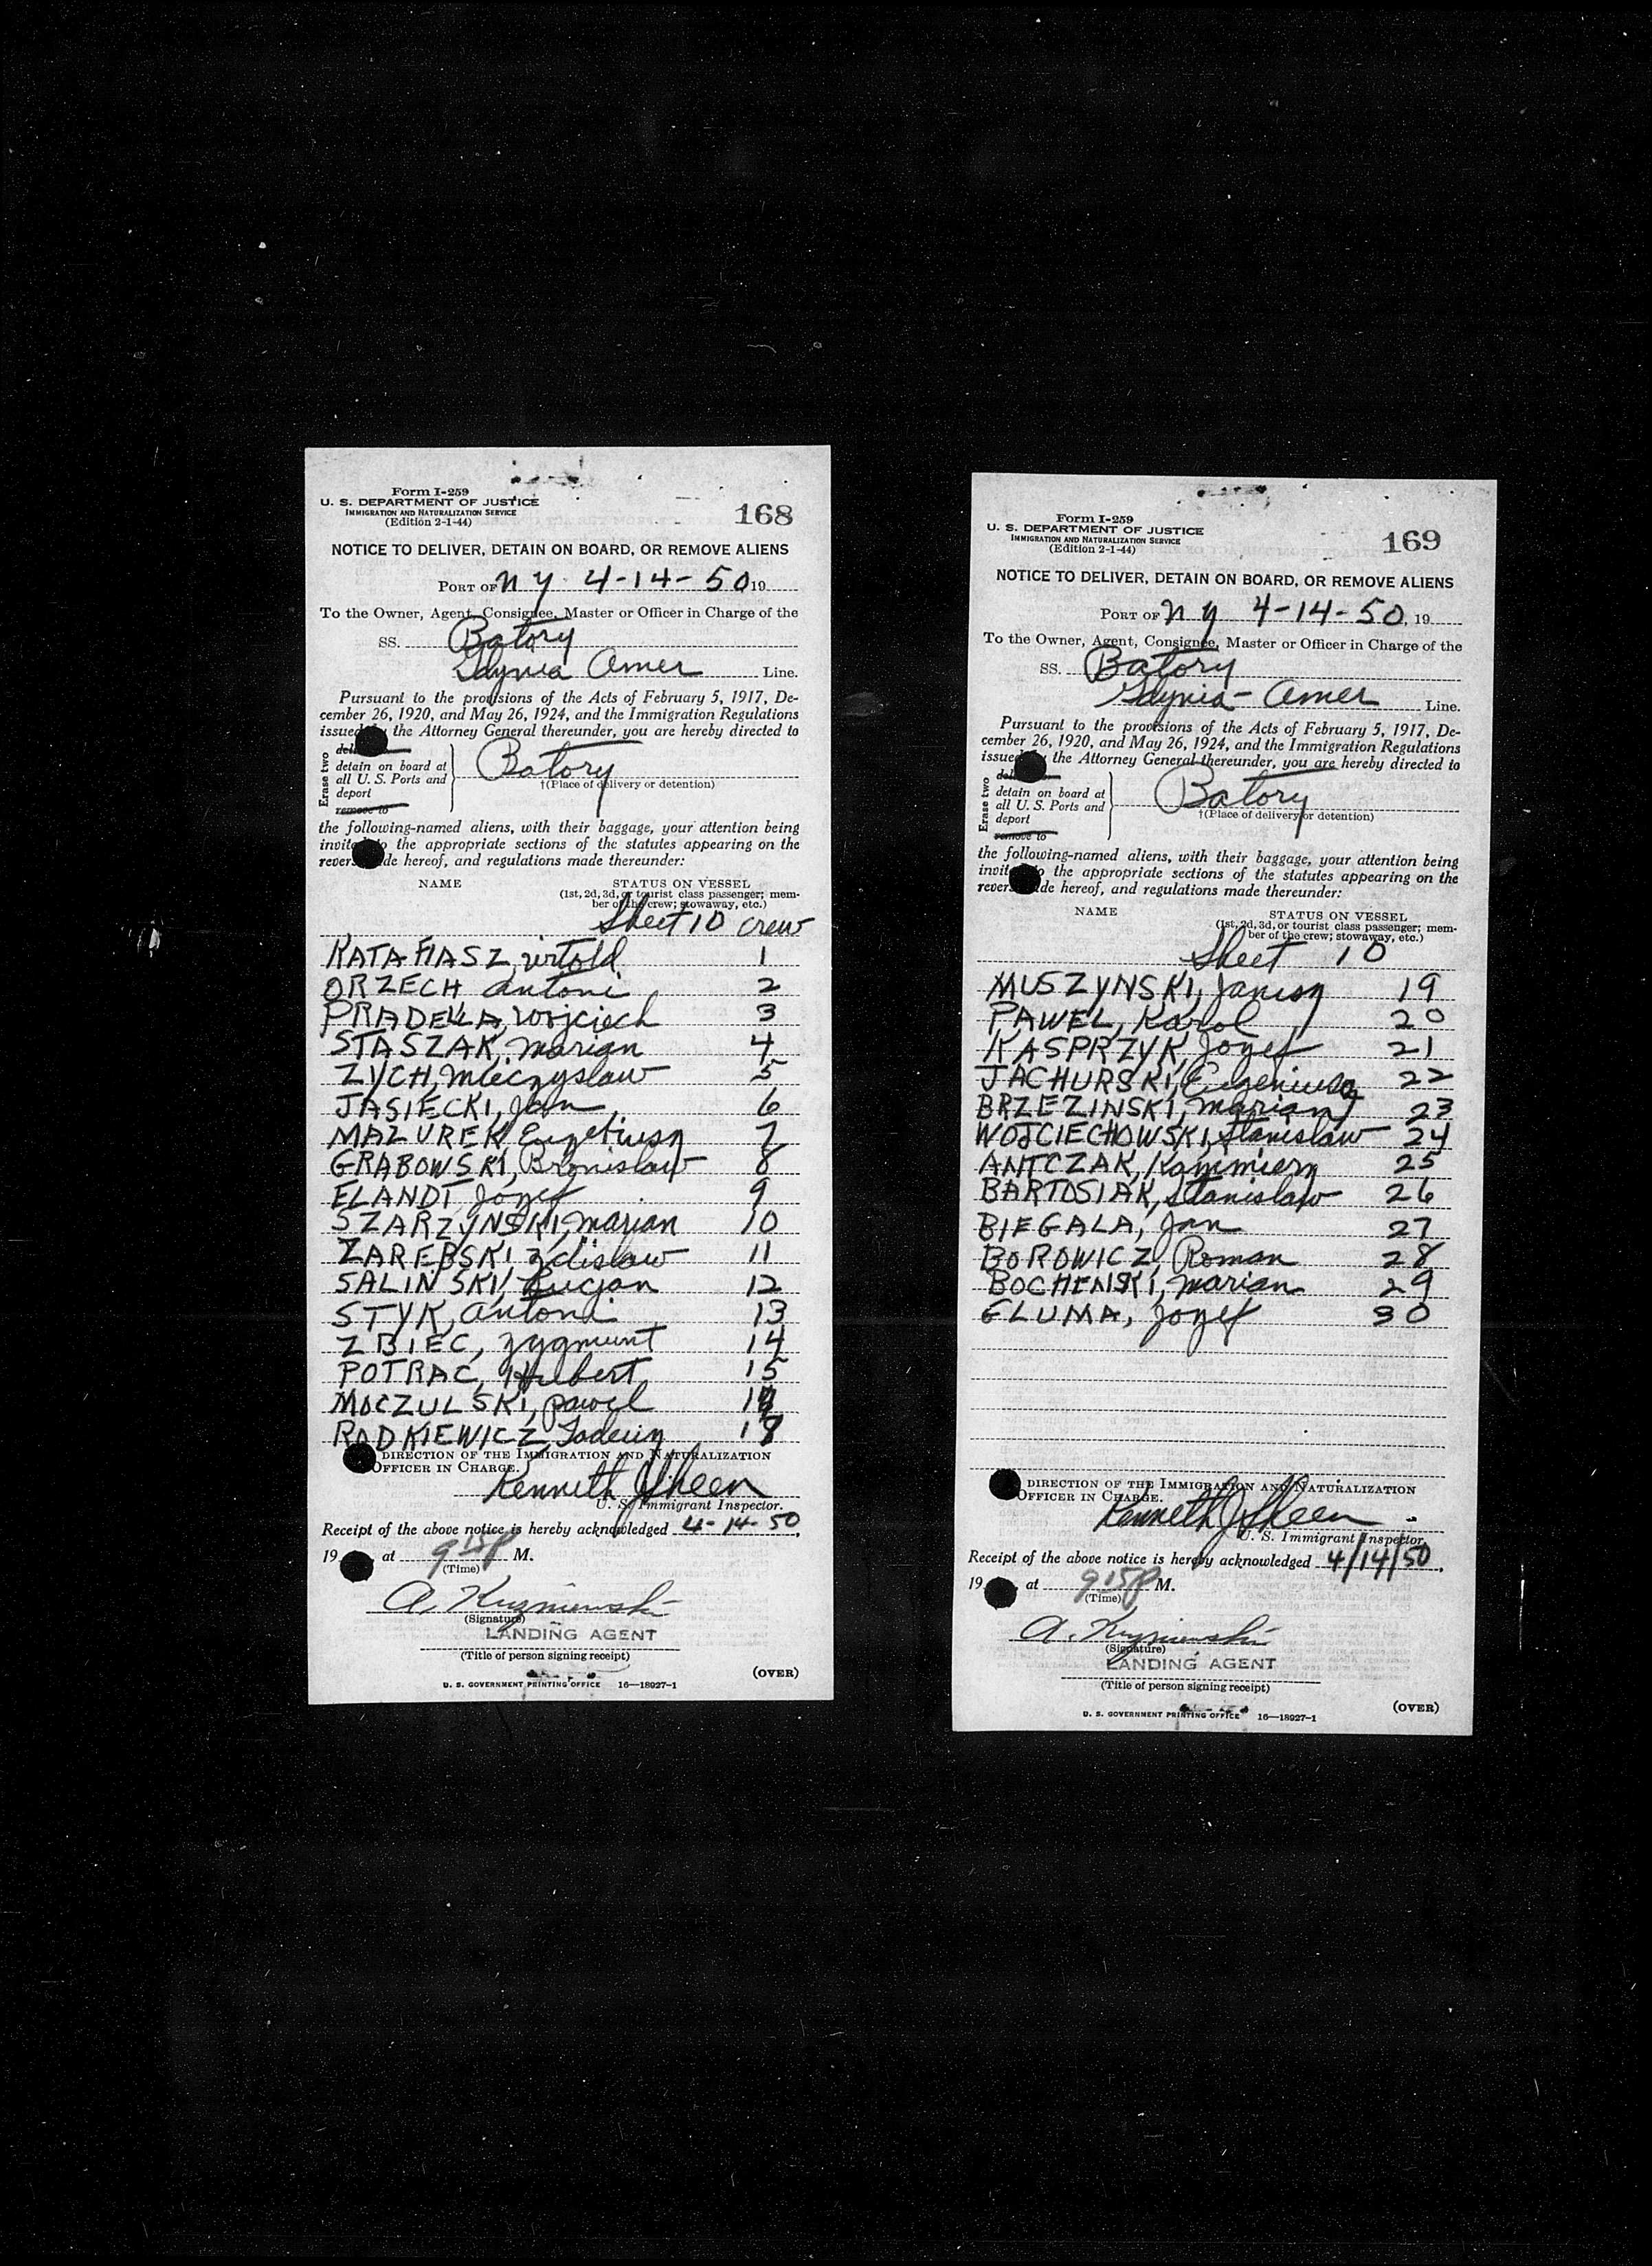 Form I-259
U. S. DEPARTMENT OF JUSTICE
IMMIGRATION AND NATURALIZATION SERVICE
(Edition 2-1-44)
168
NOTICE TO DELIVER, DETAIN ON BOARD, OR REMOVE ALIENS
PORT OF N Y 4-14-50 19
To the Owner, Agent, Consignee, Master or Officer in Charge of the
SS. Batory
Gdynia Amer Line.
Pursuant to the provisions of the Acts of February 5, 1917, De-
cember 26, 1920, and May 26, 1924, and the Immigration Regulations
issued the Attorney General thereunder, you are hereby directed to
Erase two
detain on board at
all U. S. Ports and
deport
remove to
Batory
†(Place of delivery or detention)
the following-named aliens, with their baggage, your attention being
the appropriate sections of the statutes appearing on the
hereof, and regulations made thereunder:
NAME
STATUS ON VESSEL
(1st, 2d, 3d, or tourist class passenger; mem-
ber of the crew; stowaway, etc.)
Sheet 10 crew
KATAFIASZ, Witold 1
ORZECH Antoni 2
PRADELLA, Wojciech 3
STASZAK, Marian 4
ZYCH, Mieczyslaw 5
JASIECKI, Jan 6
MAZUREK 7
GRABOWSKI, Bronislaw 8
ELANDT, Jozef 9
SZARZYNSKI, Marian 10
ZAREBSKI, Zdislaw 11
SALINSKI, Lucjan 12
STYK, Antoni 13
ZBIEC, Zygmunt 14
POTRAC, Hubert 15
MOCZULSKI, Pawel
RODKIEWICZ, Tadeusz 18
DIRECTION OF THE IMMIGRATION AND NATURALIZATION
OFFICER IN CHARGE.
Kenneth J Sheen
U. S. Immigrant Inspector.
Receipt of the above notice is hereby acknowledged 4-14-50,
19 , at 9 15 P M.
(Time)
A. Kuzniewski
(Signature)
LANDING AGENT
(Title of person signing receipt)
(OVER)
U. S. GOVERNMENT PRINTING OFFICE 16—18927-1
Form I-259
U. S. DEPARTMENT OF JUSTICE
IMMIGRATION AND NATURALIZATION SERVICE
(Edition 2-1-44)
169
NOTICE TO DELIVER, DETAIN ON BOARD, OR REMOVE ALIENS
PORT OF N Y 4-14-50, 19
To the Owner, Agent, Consignee, Master or Officer in Charge of the
SS. Batory
Gdynia - Amer Line.
Pursuant to the provisions of the Acts of February 5, 1917, De-
cember 26, 1920, and May 26, 1924, and the Immigration Regulations
the Attorney General thereunder, you are hereby directed to
Erase two
detain on board at
all U. S. Ports and
deport
remove to
Batory
†(Place of delivery or detention)
the following-named aliens, with their baggage, your attention being
the appropriate sections of the statutes appearing on the
hereof, and regulations made thereunder:
NAME
STATUS ON VESSEL
(1st, 2d, 3d, or tourist class passenger; mem-
ber of the crew; stowaway, etc.)
Sheet 10
MUSZYNSKI, Janusz 19
PAWEL, Karol 20
KASPRZYK, Jozef 21
JACHURSKI, Eugeniusz 22
BRZEZINSKI, Marian 23
WOJCIECHOWSKI, Stanislaw 24
ANTCZAK, Kazimierz 25
BARTOSIAK, Stanislaw 26
BIEGALA, Jan 27
BOROWICZ, Roman 28
BOCHENSKI, Marian 29
GLUMA, Jozef 30
DIRECTION OF THE IMMIGRATION AND NATURALIZATION
OFFICER IN CHARGE.
Kenneth J Sheen
U. S. Immigrant Inspector.
Receipt of the above notice is hereby acknowledged 4/14/50,
19 , at 9 15 P M.
(Time)
A. Kuzniewski
(Signature)
LANDING AGENT
(Title of person signing receipt)
(OVER)
U. S. GOVERNMENT PRINTING OFFICE 16—18927-1